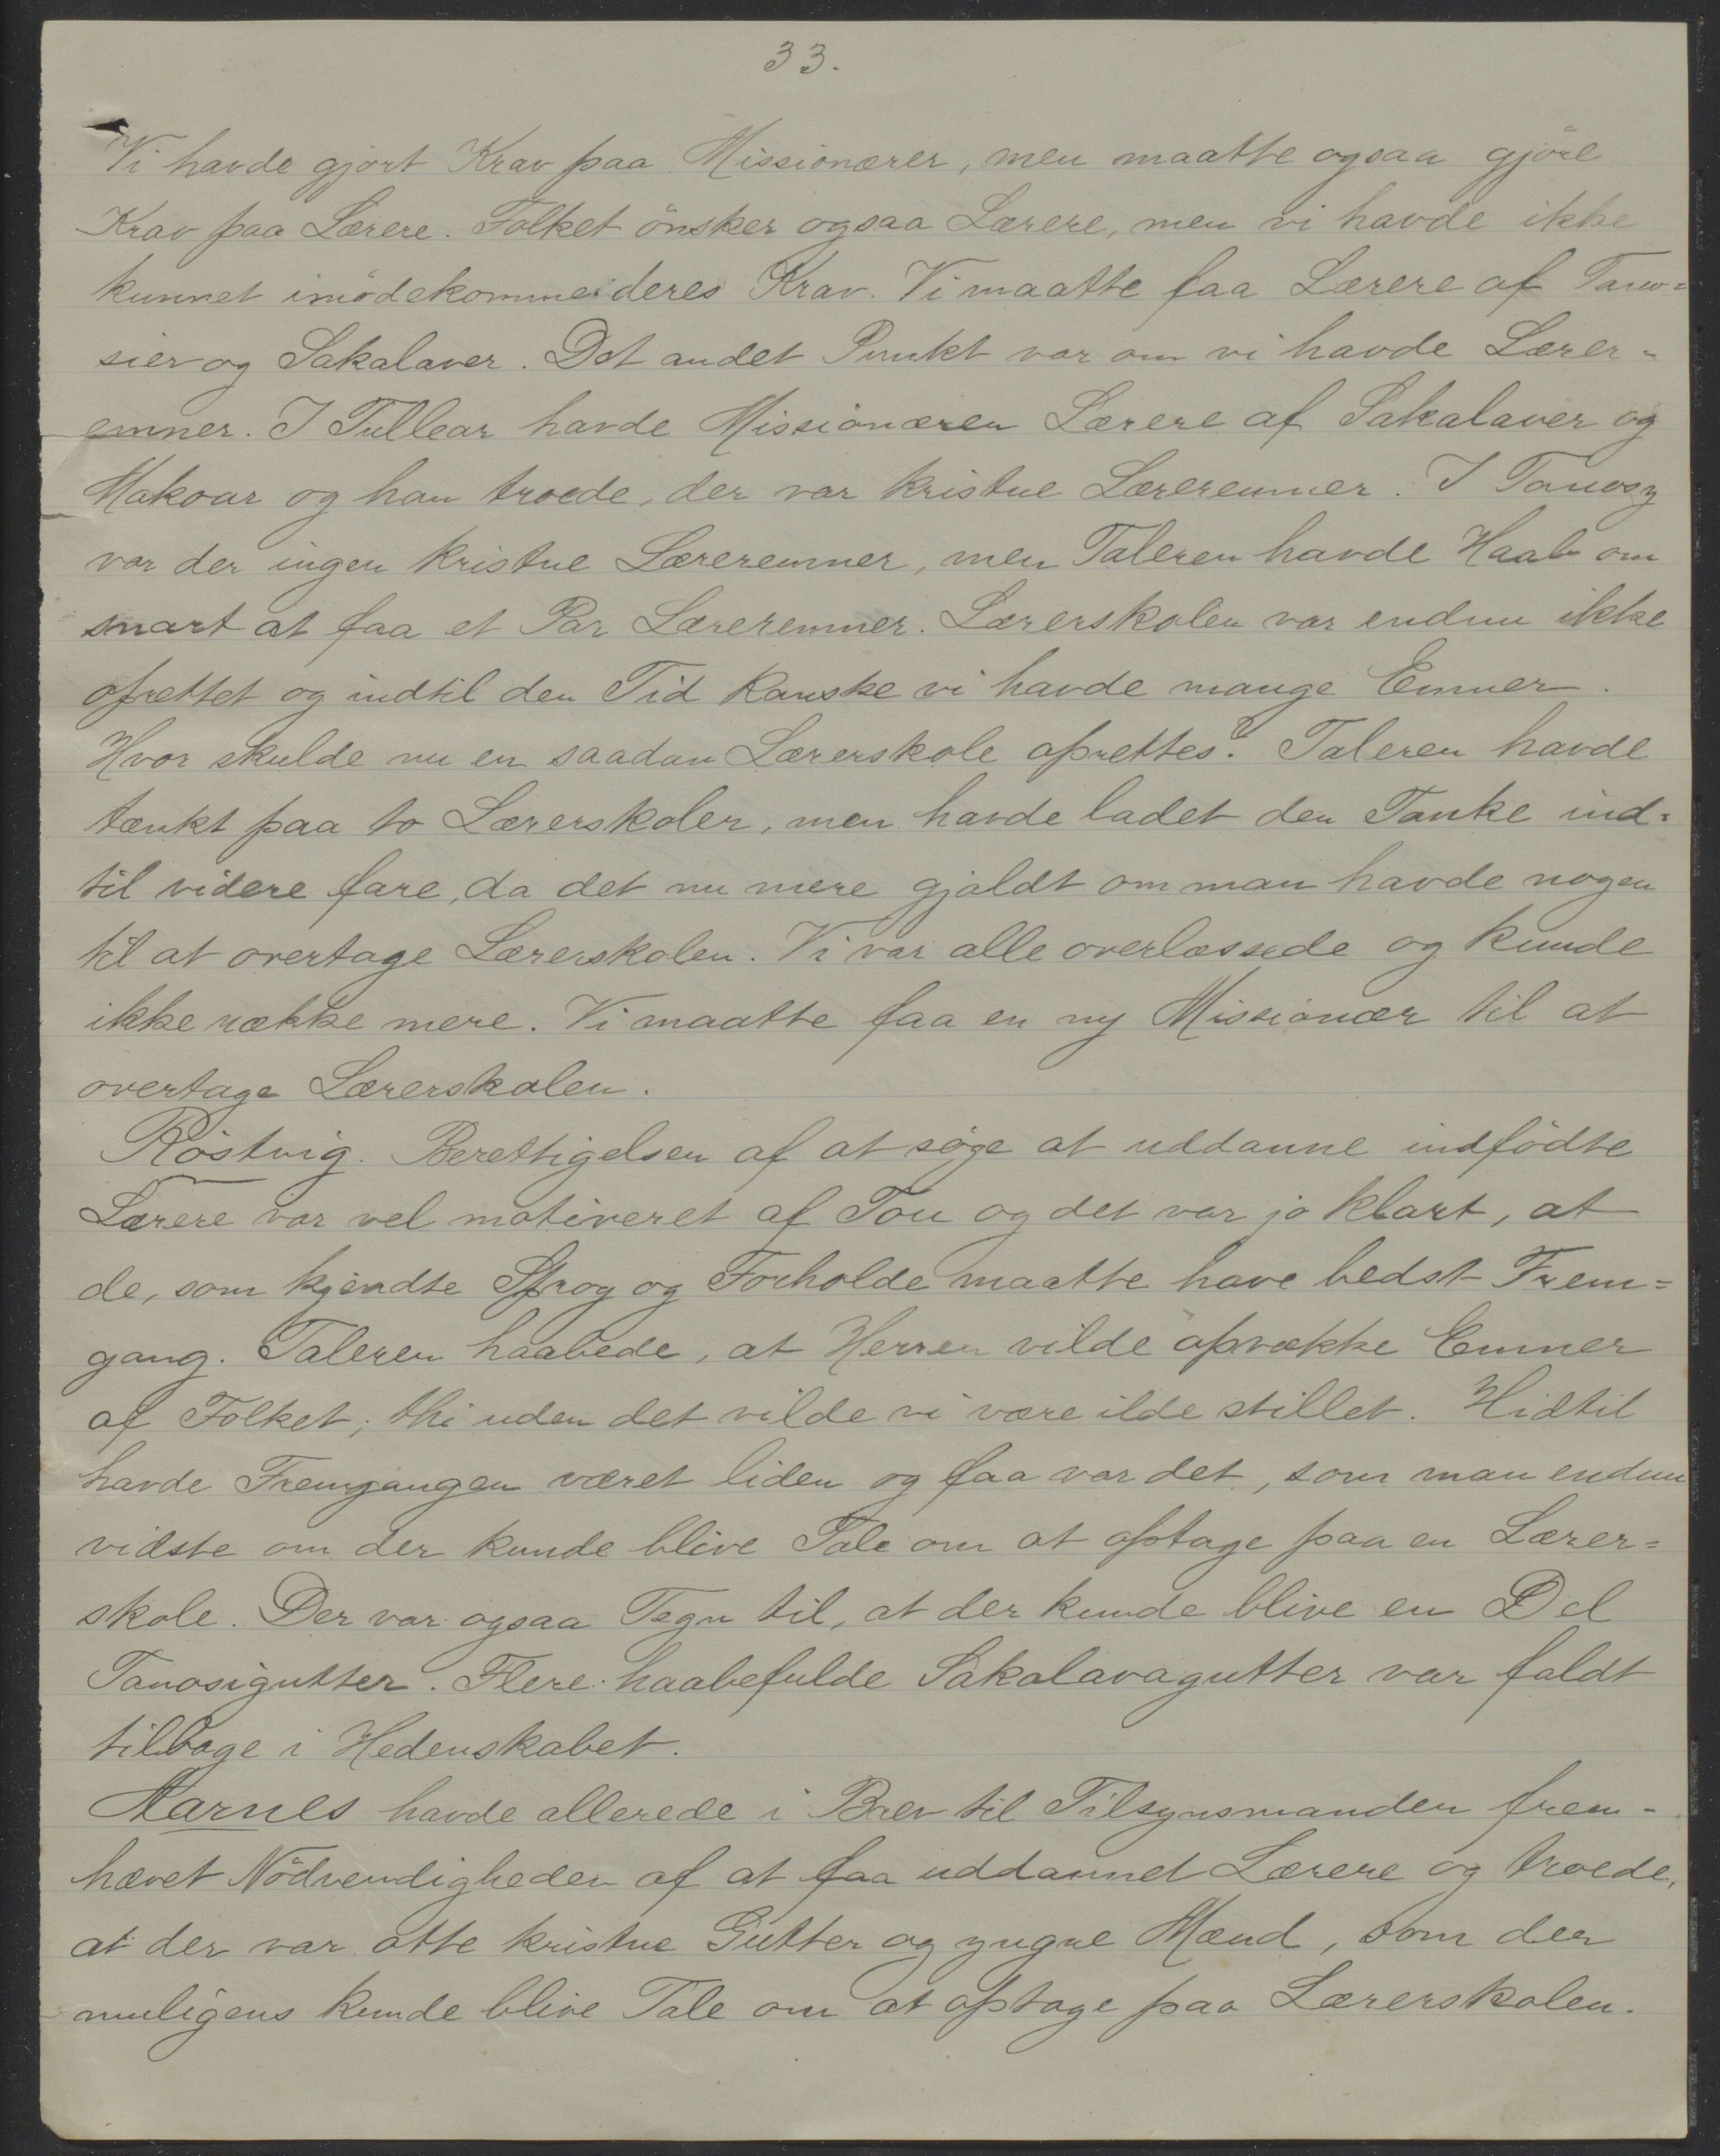 33.
Vi havde gjort Krav paa Missionærer, men maatte ogsaa gjöre
Krav paa Lærere. Folket önsker ogsaa Lærere, men vi havde ikke
kunnet imödekomme deres Krav. Vi maatte faa Lærere af Tano=
sier og Sakalaver. Det andet Punkt var om vi havde Lærer-
emner. I Tullear havde Missionæren Lærere af Sakalaver og
Makoar og han troede, der var kristne Læreremner. I Tanosy
var der ingen kristne Læreremner, men Taleren havde Haab om
snart at faa et Par Læreremner. Lærerskolen var endnu ikke
oprettet og indtil den Tid kanske vi havde mange Emner.
Hvor skulde nu en saadan Lærerskole oprettes? Taleren havde
tænkt paa to Lærerskoler, men havde ladet den Tanke ind=
til videre fare, da det nu mere gjaldt om man havde nogen
til at overtage Lærerskolen. Vi var alle overlæssede og kunde
ikke række mere. Vi maatte faa en ny Missionær til at
overtage Lærerskolen.
Röstvig. Berettigelsen af at söge at uddanne indfödte
Lærere var vel motiveret af Tou og det var jo klart, at
de, som kjendte Sprog og Forholde maatte have bedst Frem=
gang. Taleren haabede, at Herren vilde opvække Emner
af Folket; thi uden det vilde vi være ilde stillet. Hidtil
havde Fremgangen været liden og faa var det, som man endnu
vidste om der kunde blive Tale om at optage paa en Lærer=
skole. Der var ogsaa Tegn til, at der kunde blive en Del
Tanosigutter. Flere haabefulde Sakalavagutter var faldt
tilbage i Hedenskabet.
Aarnes havde allerede i Brev til Tilsynsmanden frem-
hævet Nödvendigheden af at faa uddannet Lærere og troede,
at der var otte kristne Gutter og yngre Mænd, som der
muligens kunde blive Tale om at optage paa Lærerskolen.